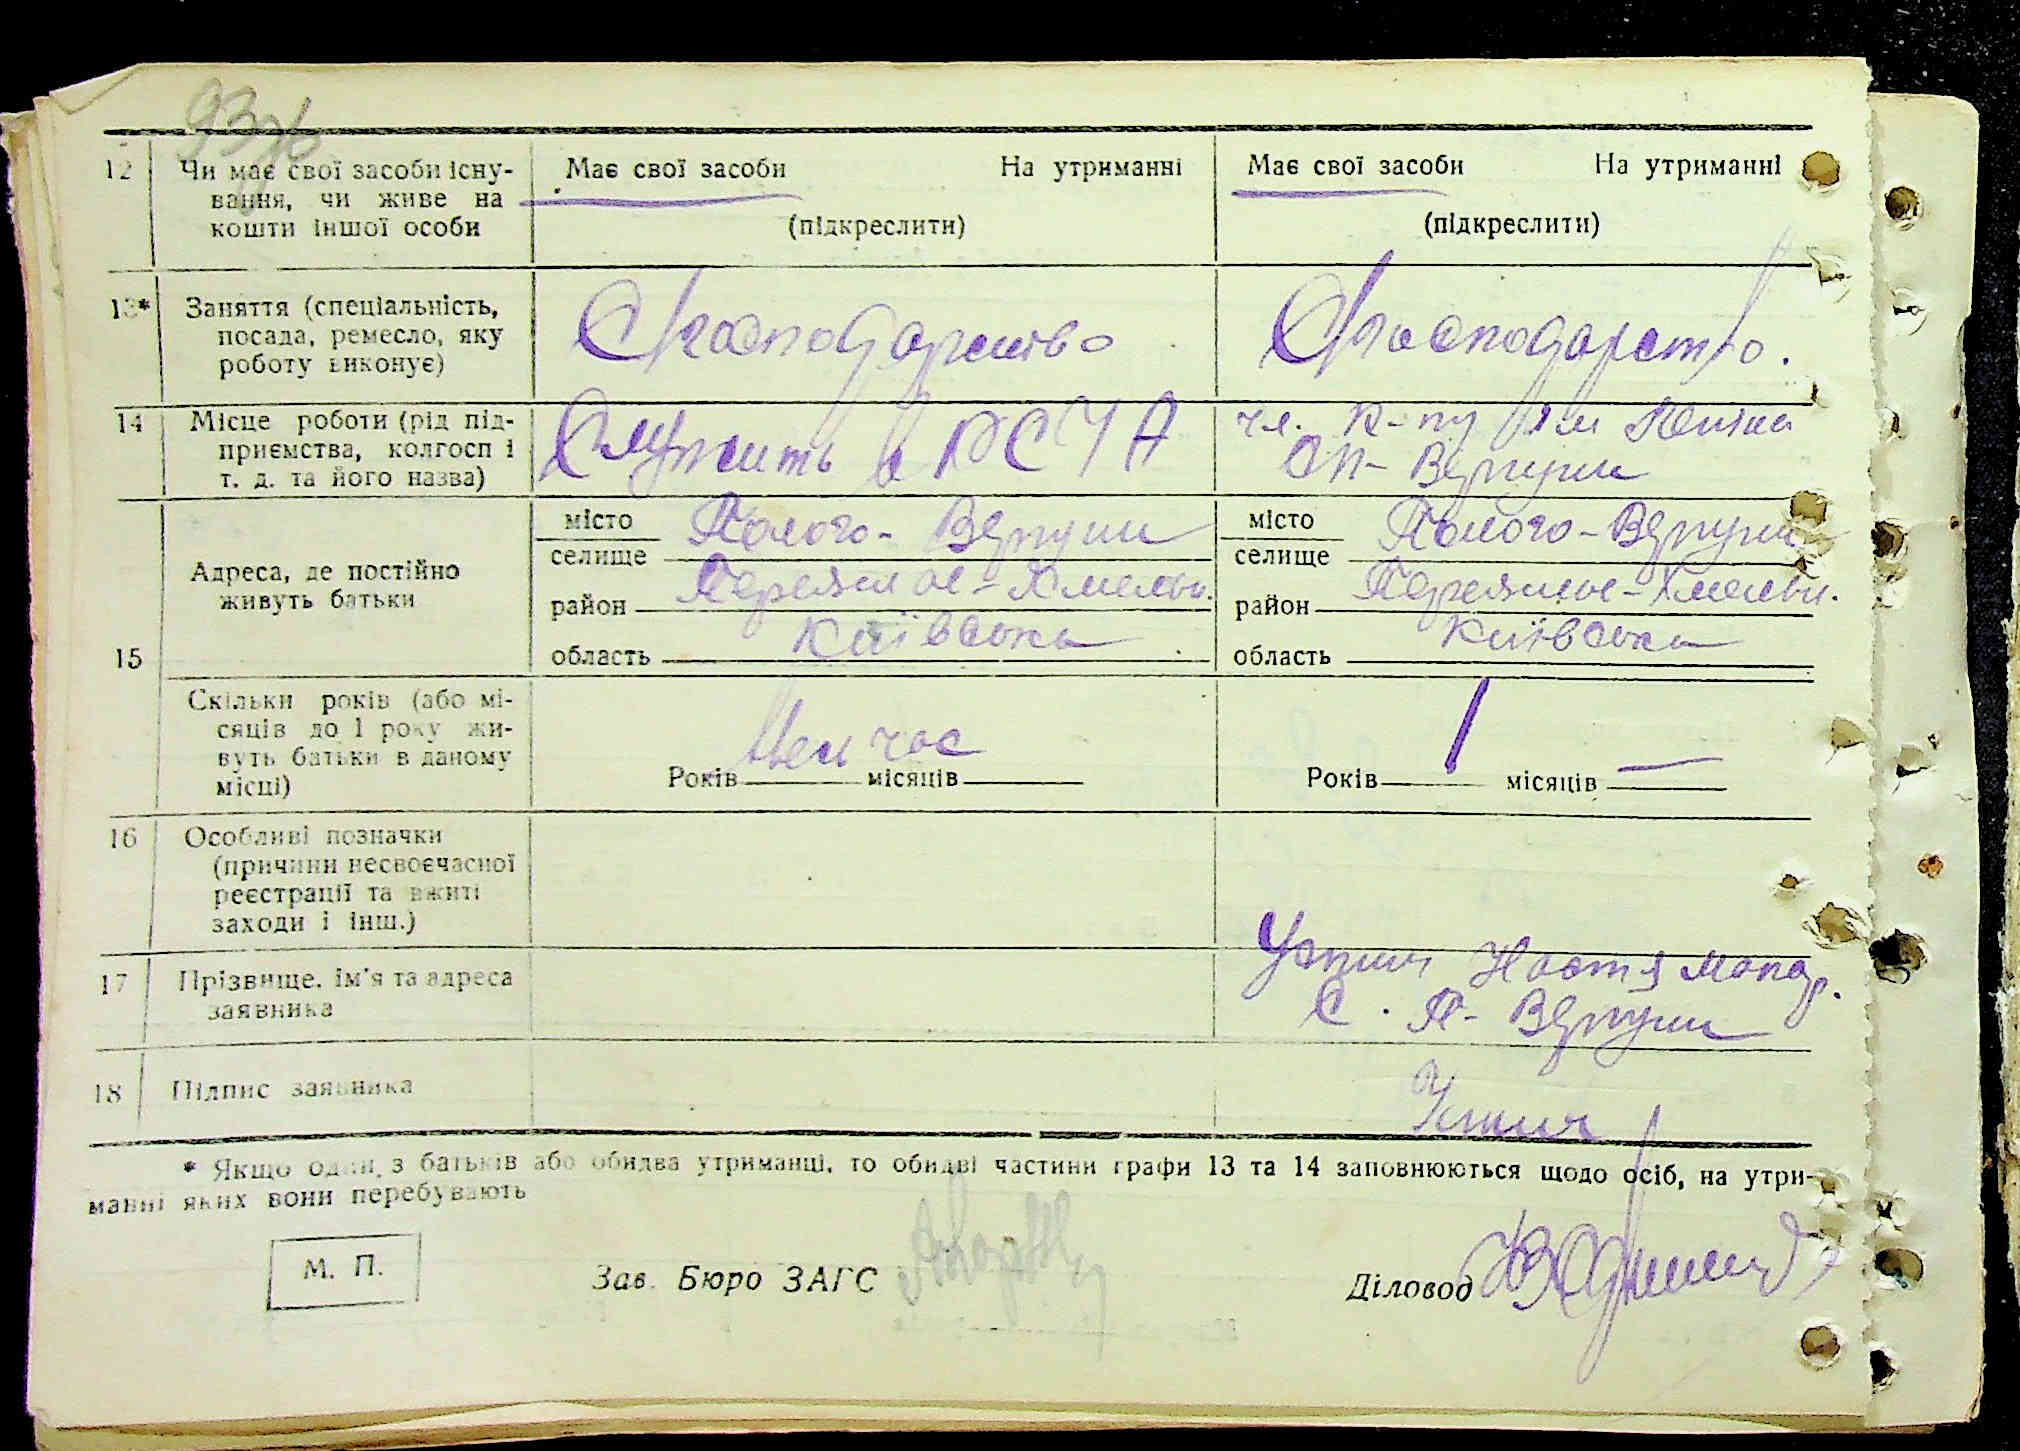 93зв
12 Чи має свої засоби існу- Має свої засоби На утриманні Має свої засоби На утриманні
вання, чи живе на
кошти іншої особи (підкреслити) (підкреслити)
13* Заняття (спеціальність,
посада, ремесло, яку С/господарство С/господарство.
роботу виконує)
14 Місце роботи (рід під- Служить в РСЧА чл. к-пу ім Леніна
приємства, колгосп і Вергуни
т. д. та його назва)
місто Полого-Вергуни місто Полого-Вергуни
селище селище
Адреса, де постійно
живуть батьки район Переяслав-Хмельн. район Переяслав-Хмельн.
15 область Київська область Київська
Скільки років (або мі-
сяців до 1 року жи- весь час 1
вуть батьки в даному
місці) Років місяців Років місяців —
16 Особливі позначки
(причини несвоєчасної
реєстрації та вжиті
заходи і інш.)
17 Прізвище, ім'я та адреса Настя Макар.
заявника с. П-Вергуни
18 Підпис заявника
* Якщо один з батьків або обидва утриманці, то обидві частини графи 13 та 14 заповнюються щодо осіб, на утри-
манні яких вони перебувають
М. П. Зав. Бюро ЗАГС Діловод